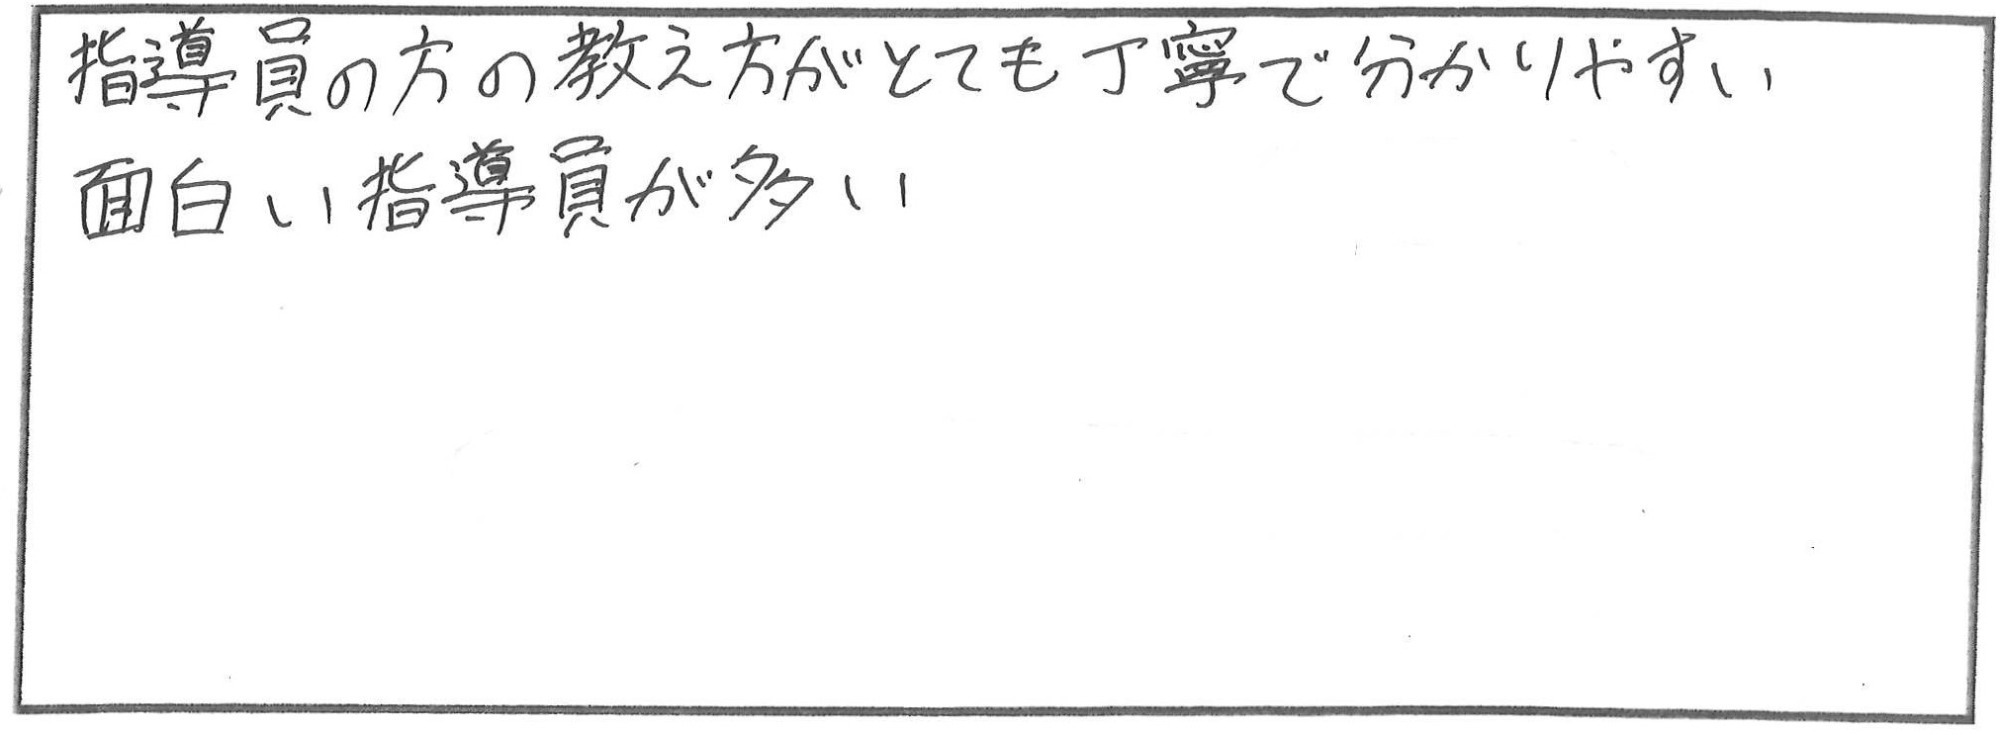 指導員の方の教え方がとても丁寧で分かりやすい
面白い指導員が多い